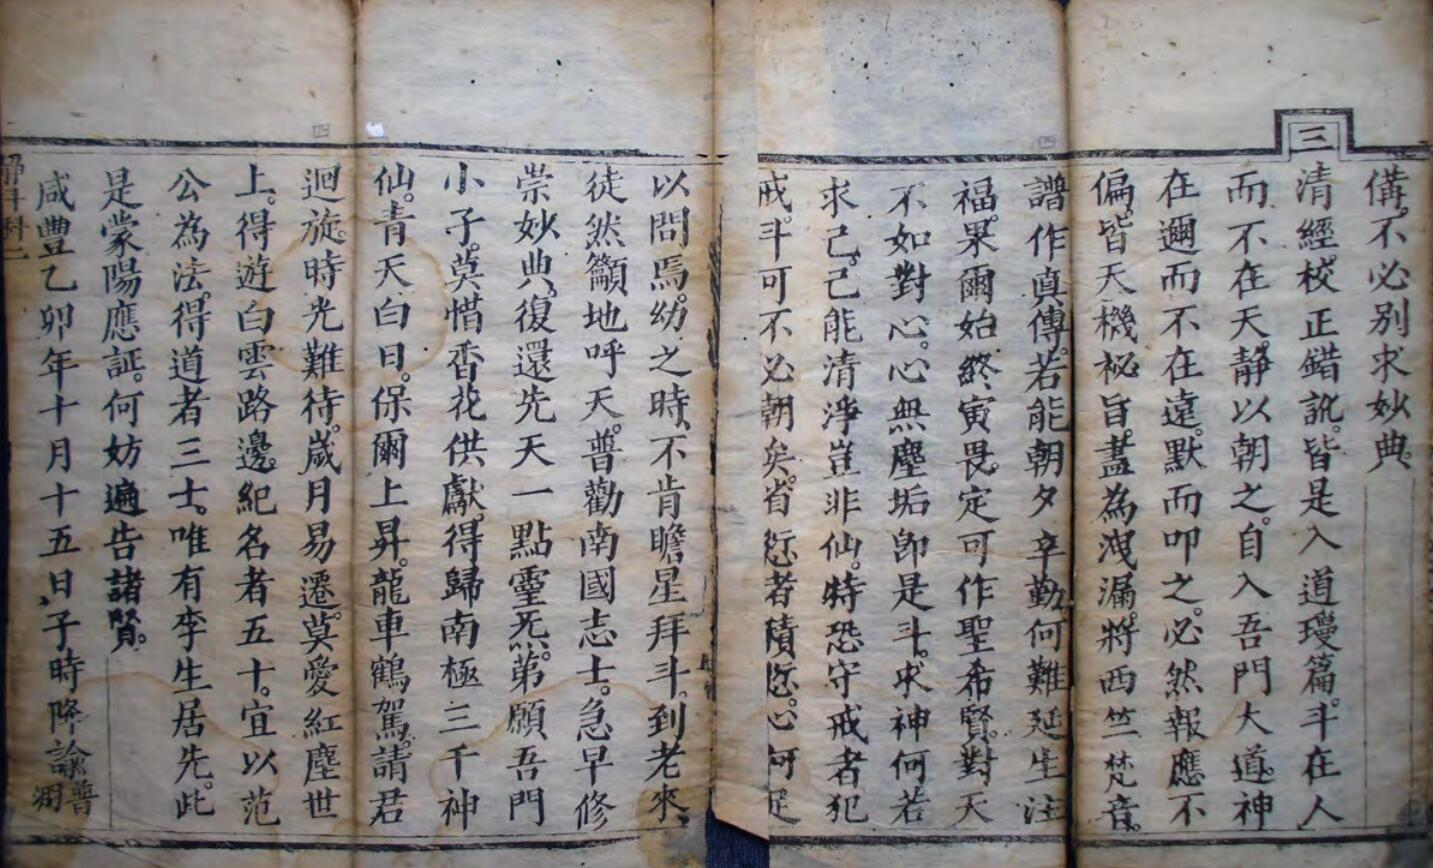 備。不必別求妙典。
三
清經。校正錯訛。皆是入道瓊篇。斗在人
而不在天。靜以朝之。自入吾門大道。神
在邇而不在遠。默而叩之。必然報應不
偏。皆天機祕旨。盡為洩漏。將西竺梵音。
譜作真傳。若能朝夕辛勤。何難延生注
福。果爾始終寅畏。定可作聖希賢。對天
不如對心。心無塵垢卽是斗。求神何若
求己。己能清淨豈非仙。特恐守戒者犯
戒。斗可不必朝矣。省愆者積愆。心何足
以問焉。幼之時、不肯瞻星拜斗。到老來、
徒然籲地呼天。普勸南國志士。急早修
崇妙典、復還先天一點靈炁。第願吾門
小子。莫惜香花供獻。得歸南極三千神
仙。青天白日。保爾上昇。龍車鶴駕。請君
迴旋。時光難待。歲月易遷。莫愛紅塵世
上。得遊白雲路邊。紀名者五十。宜以范
公為法。得道者三士。唯有李生居先。此
是蒙陽應証。何妨遍告諸賢。
咸豐乙卯年十月十五日、子時降諭普澗